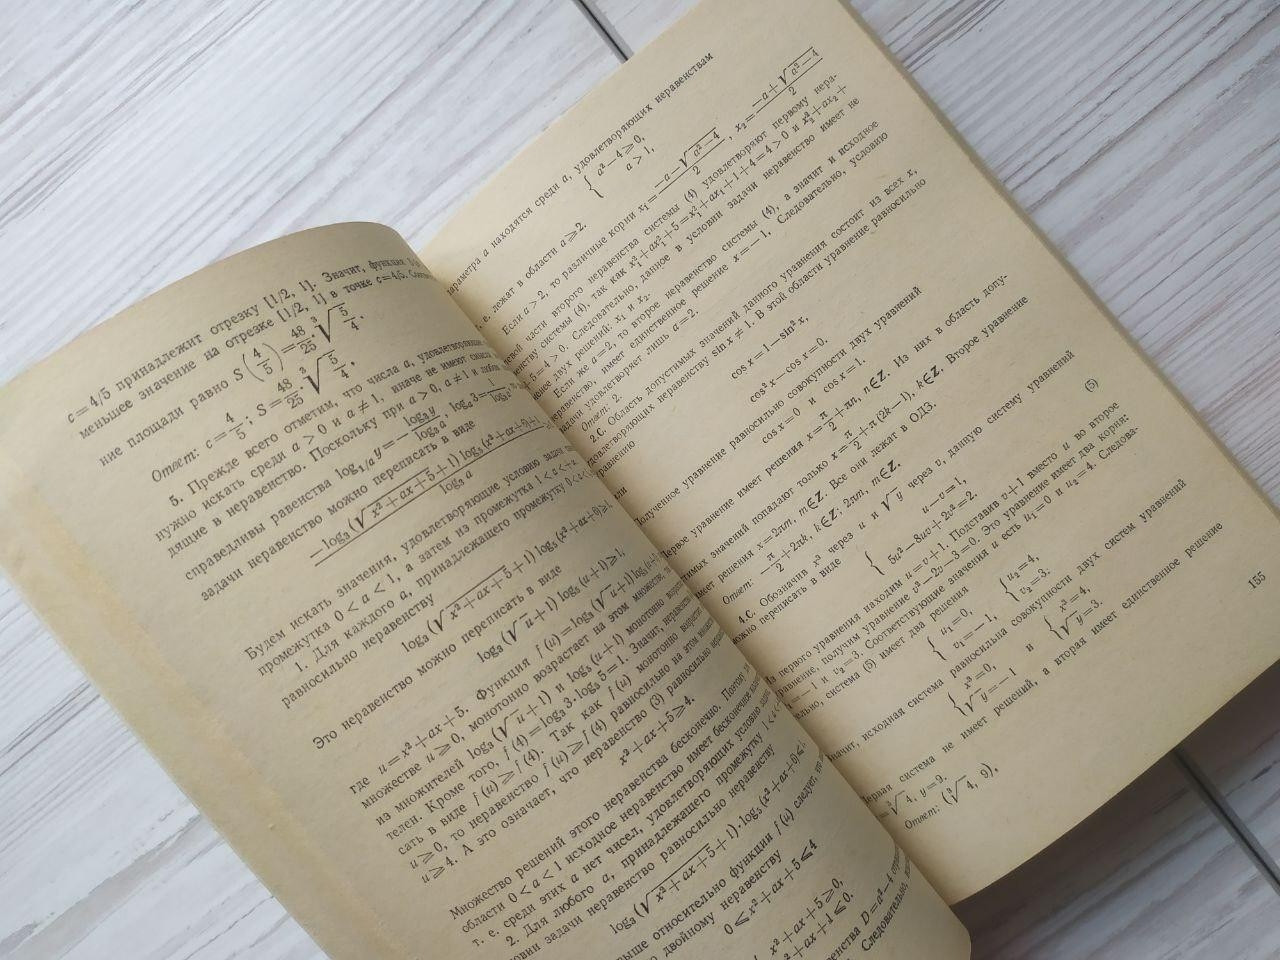 c=4/5 принадлежит отрезку [1/2, 1]. Значит, функция
меньшее значение на отрезке [1/2, 1] в точке c=4/5.
ние площади равно S(4/5)=48/25 ∛(5/4).
Ответ: c=4/5; S=48/25 ∛(5/4).
5. Прежде всего отметим, что числа a, удовлетворяющие
нужно искать среди a>0 и a≠1, иначе не имеют смысла
дящие в неравенство. Поскольку при a>0, a≠1 и любом
справедливы равенства log₁/ₐ y=−log₃ y/log₃ a, logₐ 3=
задачи неравенство можно переписать в виде
−log₃(√(x²+ax+5)+1) log₅(x²+ax+6)+1
log₃ a
Будем искать значения, удовлетворяющие условию задачи
промежутка 0<a<1, а затем из промежутка 1<a<+∞
1. Для каждого a, принадлежащего промежутку 0<a<
равносильно неравенству
log₃(√(x²+ax+5)+1) log₅(x²+ax+6)≥1.
Это неравенство можно переписать в виде
log₃(√u+1) log₅(u+1)≥1,
где u=x²+ax+5. Функция f(u)=log₃(√u+1) log₅
множестве u≥0, монотонно возрастает на этом множестве,
из множителей log₃(√u+1) и log₅(u+1) монотонно возрастает
телен. Кроме того, f(4)=log₃3·log₅5=1. Значит, неравенство
сать в виде f(u)≥f(4). Так как f(u) монотонно возрастает
u≥0, то неравенство f(u)≥f(4) равносильно на этом множестве
u≥4. А это означает, что неравенство (3) равносильно
x²+ax+5≥4.
Множество решений этого неравенства бесконечно. Поэтому
области 0<a<1 исходное неравенство имеет бесконечное
т. е. среди этих a нет чисел, удовлетворяющих условию задачи.
2. Для любого a, принадлежащего промежутку 1<a<
словии задачи неравенство равносильно неравенству
log₃(√(x²+ax+5)+1)·log₅(x²+ax+6)≤1.
выше относительно функции f(u) следует,
двойному неравенству
0≤x²+ax+5≤4
x²+ax+5≥0,
x²+ax+1≤0.
D=a²−4
Следовательно,
параметра a находятся среди a, удовлетворяющих неравенствам
{ a²−4≥0,
a>1,
т. е. лежат в области a≥2.
Если a>2, то различные корни x₁=(−a−√(a²−4))/2, x₂=(−a+√(a²−4))/2
левой части второго неравенства системы (4) удовлетворяют первому нера-
венству системы (4), так как x₁²+ax₁+5=x₁²+ax₁+1+4=4>0 и x₂²+ax₂+
+5=4>0. Следовательно, данное в условии задачи неравенство имеет не
менее двух решений: x₁ и x₂.
Если же a=2, то второе неравенство системы (4), а значит и исходное
неравенство, имеет единственное решение x=−1. Следовательно, условию
задачи удовлетворяет лишь a=2.
Ответ: 2.
2.С. Область допустимых значений данного уравнения состоит из всех x,
удовлетворяющих неравенству sin x≠1. В этой области уравнение равносильно
уравнению
cos x=1−sin²x,
или
cos²x−cos x=0.
Полученное уравнение равносильно совокупности двух уравнений
cos x=0 и cos x=1.
Первое уравнение имеет решения x=π/2+πn, n∈Z. Из них в область допу-
стимых значений попадают только x=π/2+π(2k−1), k∈Z. Второе уравнение
имеет решения x=2πm, m∈Z. Все они лежат в ОДЗ.
Ответ: −π/2+2πk, k∈Z; 2πm, m∈Z.
4.С. Обозначив x³ через u и √y через v, данную систему уравнений
можно переписать в виде
{ u−v=1,
5u²−8uv+2v²=2. (5)
Из первого уравнения находим u=v+1. Подставив v+1 вместо u во второе
уравнение, получим уравнение v²−2v−3=0. Это уравнение имеет два корня:
v₁=−1 и v₂=3. Соответствующие значения u есть u₁=0 и u₂=4. Следова-
тельно, система (5) имеет два решения
{ u₁=0, { u₂=4,
v₁=−1, v₂=3.
Значит, исходная система равносильна совокупности двух систем уравнений
{ x³=0, и { x³=4,
√y=−1 √y=3.
Первая система не имеет решений, а вторая имеет единственное решение
∛4, y=9.
Ответ: (∛4, 9).
155